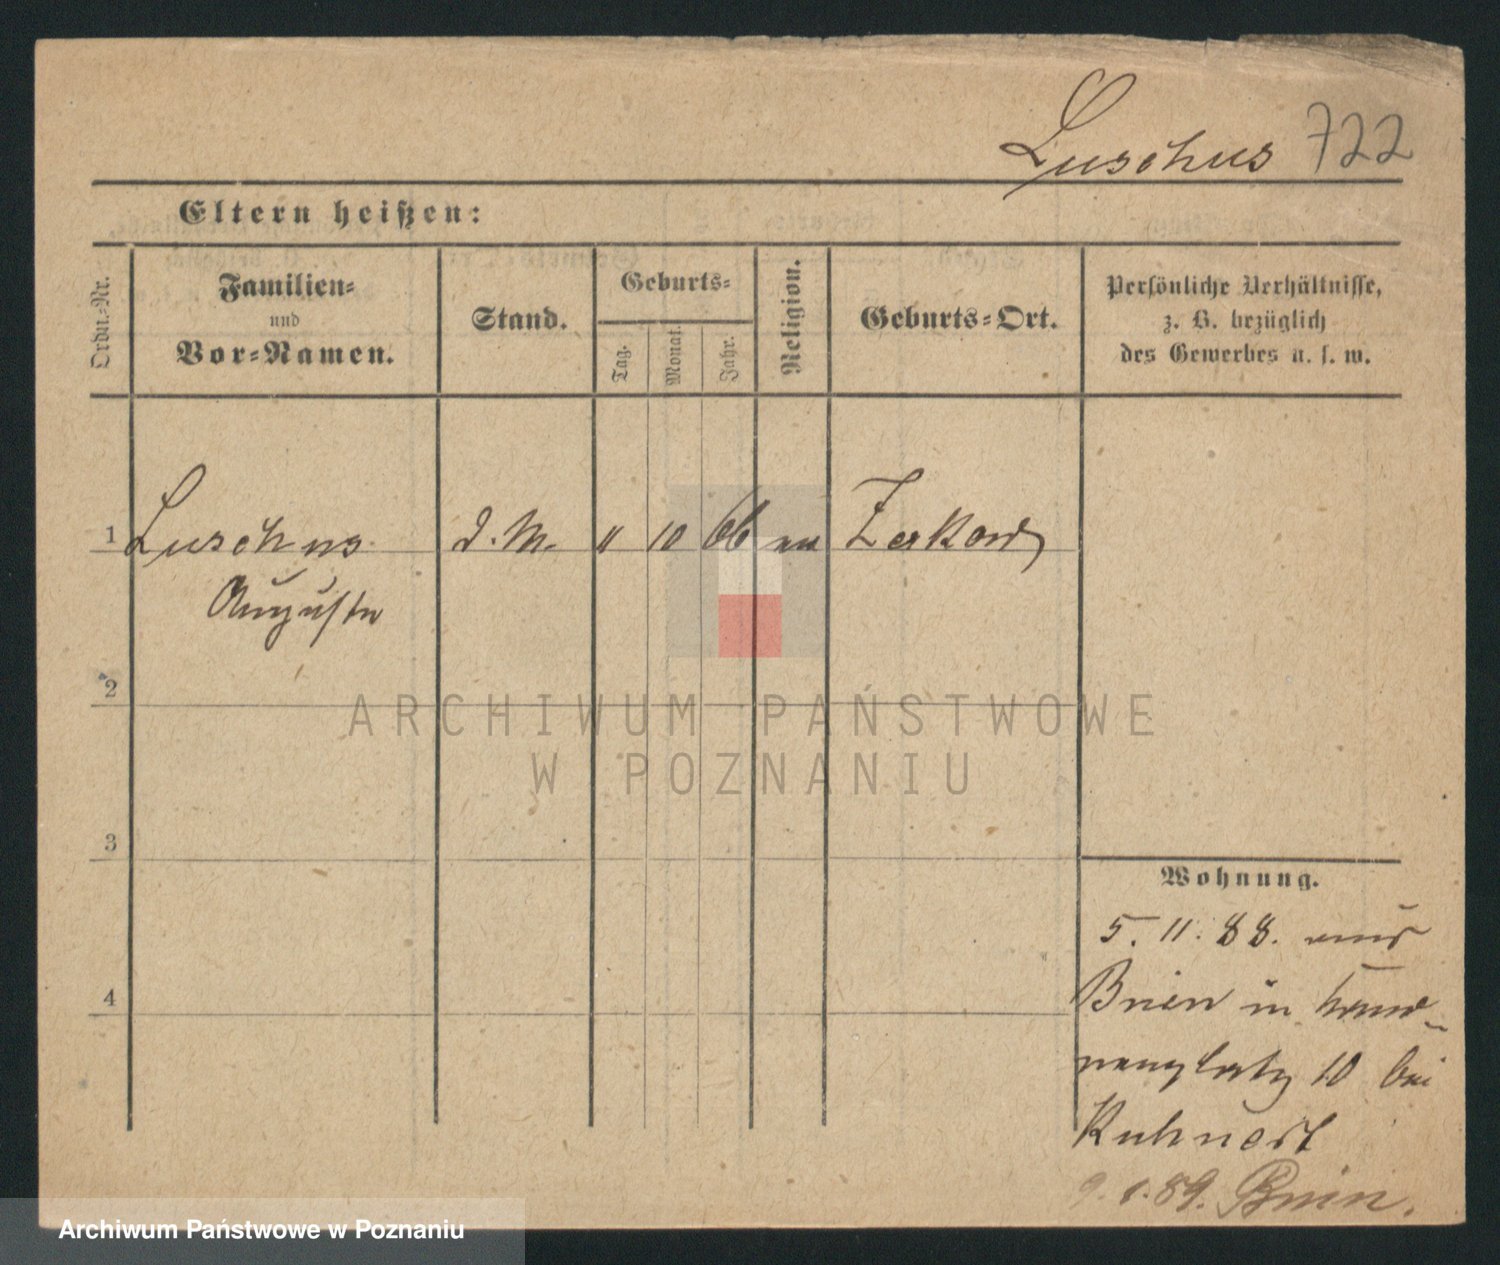 Luschus 722
Eltern heißen:
Ordn.-Nr.
Familien-
und
Vor-Namen.
Stand.
Geburts-
Tag.
Monat.
Jahr.
Religion.
Geburts-Ort.
Persönliche Verhältnisse,
z. B. bezüglich
des Gewerbes u. s. w.
1 Luschus d. M. " 10 66 ev Zerkow
Auguste
2
3
4
Wohnung.
5. 11. 88. aus
Bnin in
10 bei
Kuhnert
9. 1. 89. Bnin.
ARCHIWUM PAŃSTWOWE
W POZNANIU
Archiwum Państwowe w Poznaniu